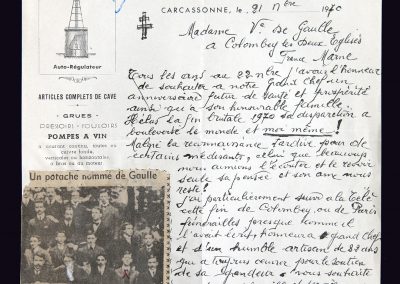 CARCASSONNE, le 21 Nbre 1970
Madame Vve de Gaulle
a Colombey les deux Eglises
Marne
Auto-Régulateur
ARTICLES COMPLETS DE CAVE
GRUES
PRESSOIRS FOULOIRS
POMPES A VIN
a courant continu, toutes ou
verticales ou horizontales,
à bras ou au moteur
Tous les ans au 22 Nbre j'avais l'honneur
de souhaiter a notre Grand Chef un
anniversaire futur de santé et prospérité
ainsi qu'a son honorable famille.
Hélas la fin brutale 1970 sa disparition a
bouleversé le monde et moi même!
Malgré la reconnaissance tardive pour de
certains médisants, celui que beaucoup
nous aimions
seule sa pensée et son ame nous
reste!
J'ai particulièrement suivi a la Télé
cette fin de Colombey ou de Paris
funérailles presque comme il
l'avait écrit, honneur a grand Chef
et d'un humble artisan de 83 ans
qui a toujours oeuvré pour le soutien
de sa Grandeur. nous souhaite
Un potache nommé de Gaulle